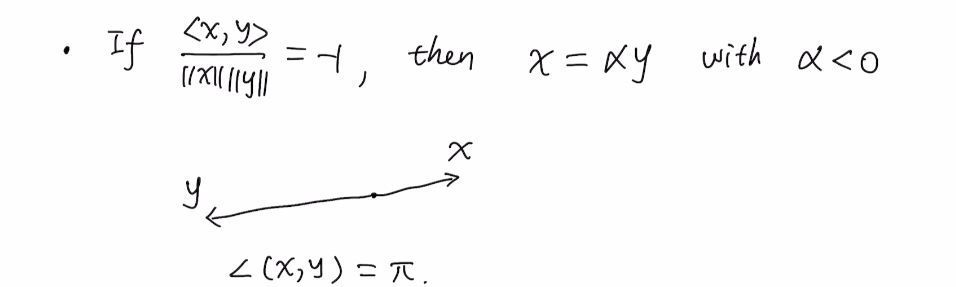 • If <x, y> / ||x|| ||y|| = -1, then x = αy with α < 0
x
y
∠(x, y) = π.